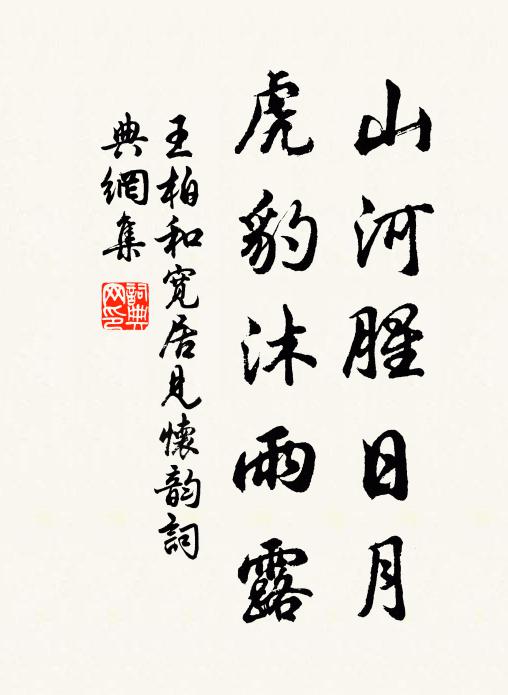 山河腥日月
虎豹沐雨露
王柏和寬居見懷韵詞
典網集
詞典
网印